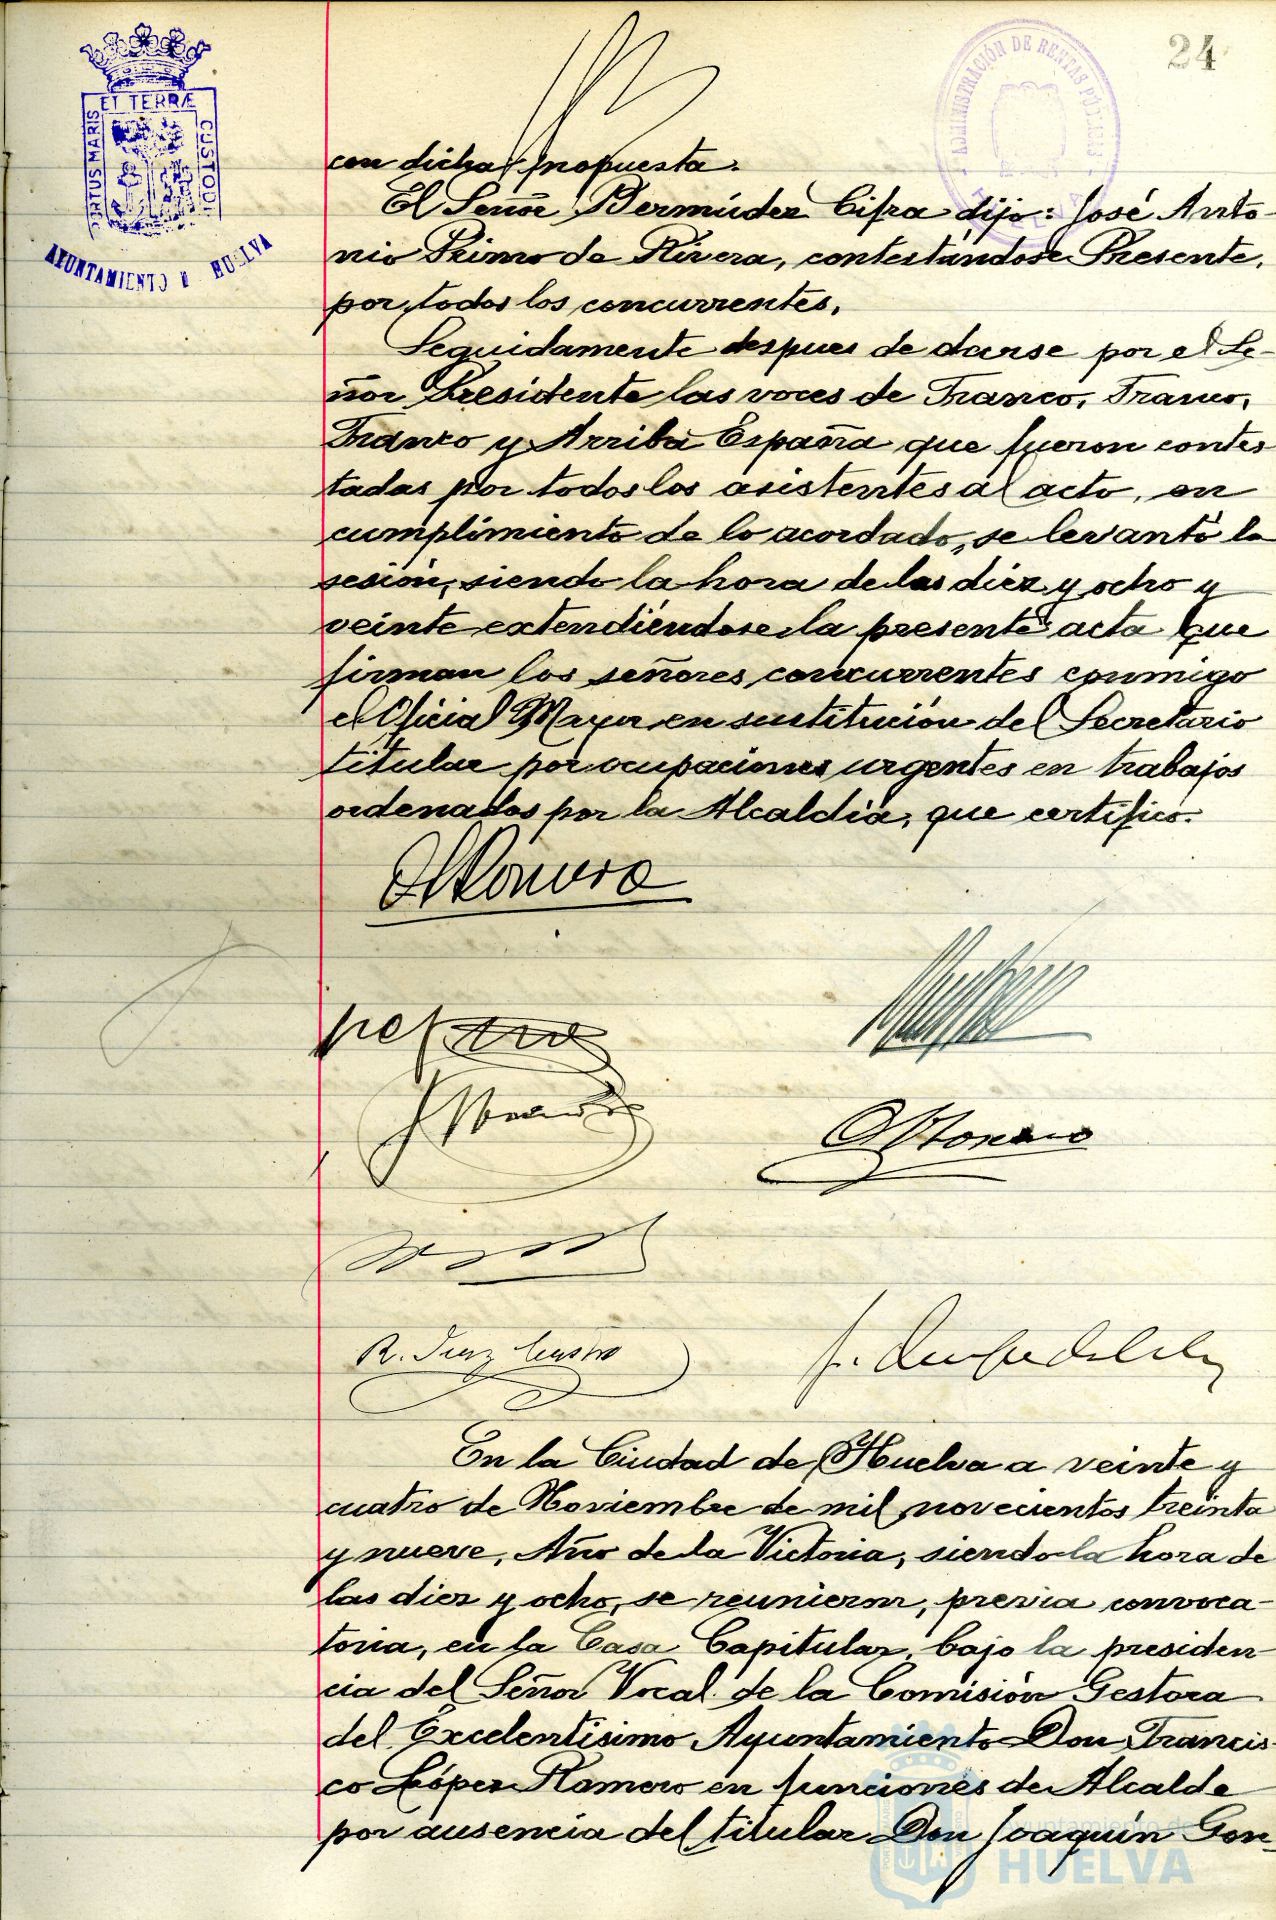 24
ET TERRÆ
PORTUS MARIS
CUSTODI
AYUNTAMIENTO D HUELVA
ADMINISTRACIÓN DE RENTAS PÚBLICAS
con dicha propuesta.
El Señor Bermúdez Cifra dijo: José Anto-
nio Primo de Rivera, contestándose Presente,
por todos los concurrentes.
Seguidamente despues de darse por el Se-
ñor Presidente las voces de Franco, Franco,
Franco y Arriba España que fueron contes
tadas por todos los asistentes al acto, en
cumplimiento de lo acordado, se levantó la
sesión, siendo la hora de las diez y ocho y
veinte extendiéndose la presente acta que
firman los señores concurrentes conmigo
el Oficial Mayor en sustitución del Secretario
titular por ocupaciones urgentes en trabajos
ordenados por la Alcaldia, que certifico.
Romero
R. Diaz Castro
En la Ciudad de Huelva a veinte y
cuatro de Noviembre de mil novecientos treinta
y nueve, Año de la Victoria, siendo la hora de
las diez y ocho, se reunieron, previa convoca-
toria, en la Casa Capitular, bajo la presiden
cia del Señor Vocal de la Comisión Gestora
del Excelentisimo Ayuntamiento Don Francis-
co López Romero en funciones de Alcalde
por ausencia del titular Don Joaquín Gon-
Ayuntamiento de
HUELVA